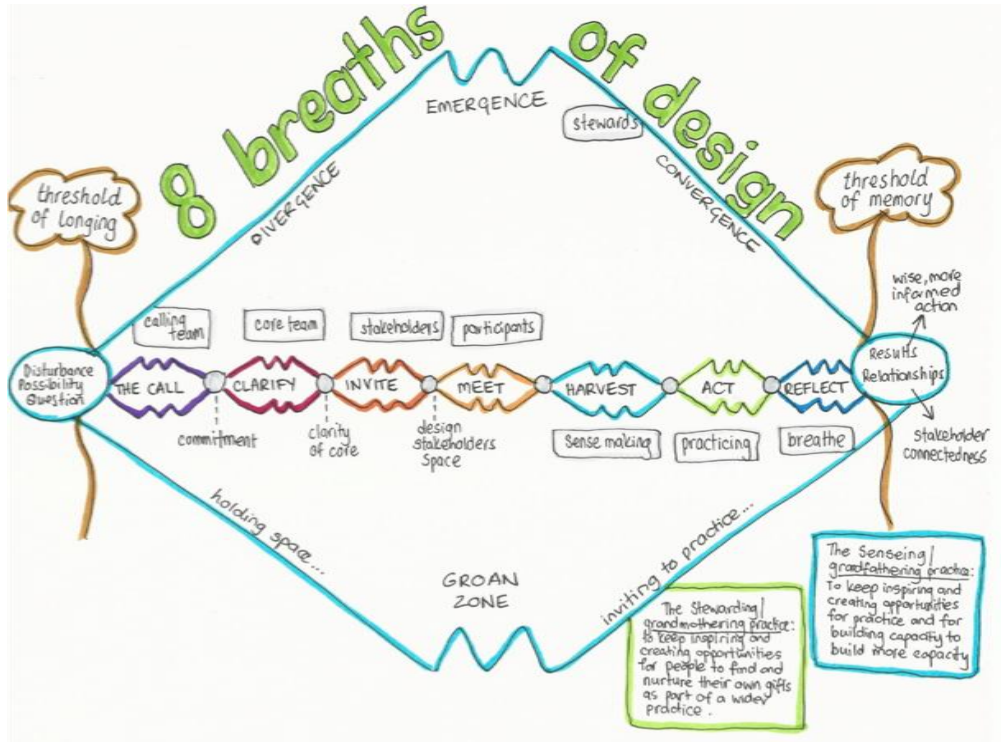 8 breaths of design
EMERGENCE
stewards
DIVERGENCE
CONVERGENCE
threshold
of longing
threshold
of memory
wise, more
informed
action
calling
team
core team
stakeholders
participants
Disturbance
Possibility
Question
THE CALL
CLARIFY
INVITE
MEET
HARVEST
ACT
REFLECT
Results
Relationships
commitment
clarity
of core
design
stakeholders
space
sense making
practicing
breathe
stakeholder
connectedness
holding space...
inviting to practice...
GROAN
ZONE
The Stewarding/
grandmothering practice:
to keep inspiring and
creating opportunities
for people to find and
nurture their own gifts
as part of a wider
practice.
The Senseing/
gradfathering practice:
To keep inspiring and
creating opportunities
for practice and for
building capacity to
build more capacity